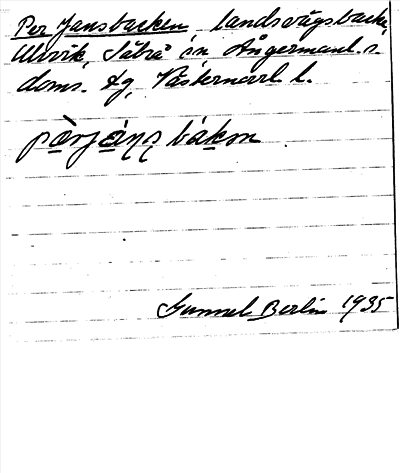 Per Jansbacken, landsvägsbacke,
Ulvvik, Säbrå sn Ångermanl. s.
doms. tg, Västernorrl. l.
pàrjáns bákən
Gunnel Berlin 1935